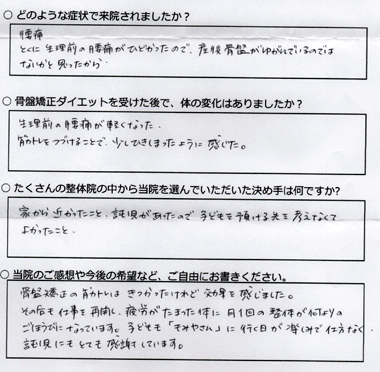 ○ どのような症状で来院されましたか？
腰痛
とくに生理前の腰痛がひどかったので、産後骨盤がゆがんでいるのでは
ないかと思ったから
○ 骨盤矯正ダイエットを受けた後で、体の変化はありましたか？
生理前の腰痛が軽くなった。
筋トレをつづけることで、少しひきしまったように感じた。
○ たくさんの整体院の中から当院を選んでいただいた決め手は何ですか？
家から近かったこと、託児があったので子どもを預ける先を考えなくて
よかったこと。
○ 当院のご感想や今後の希望など、ご自由にお書きください。
骨盤矯正の筋トレはきつかったけれど効果を感じました。
その后も仕事を再開し、疲労がたまった体に月1回の整体が何よりの
ごほうびになっています。子どもも「もみやさん」に行く日が楽しみで仕方なく
託児にもとても感謝しています。